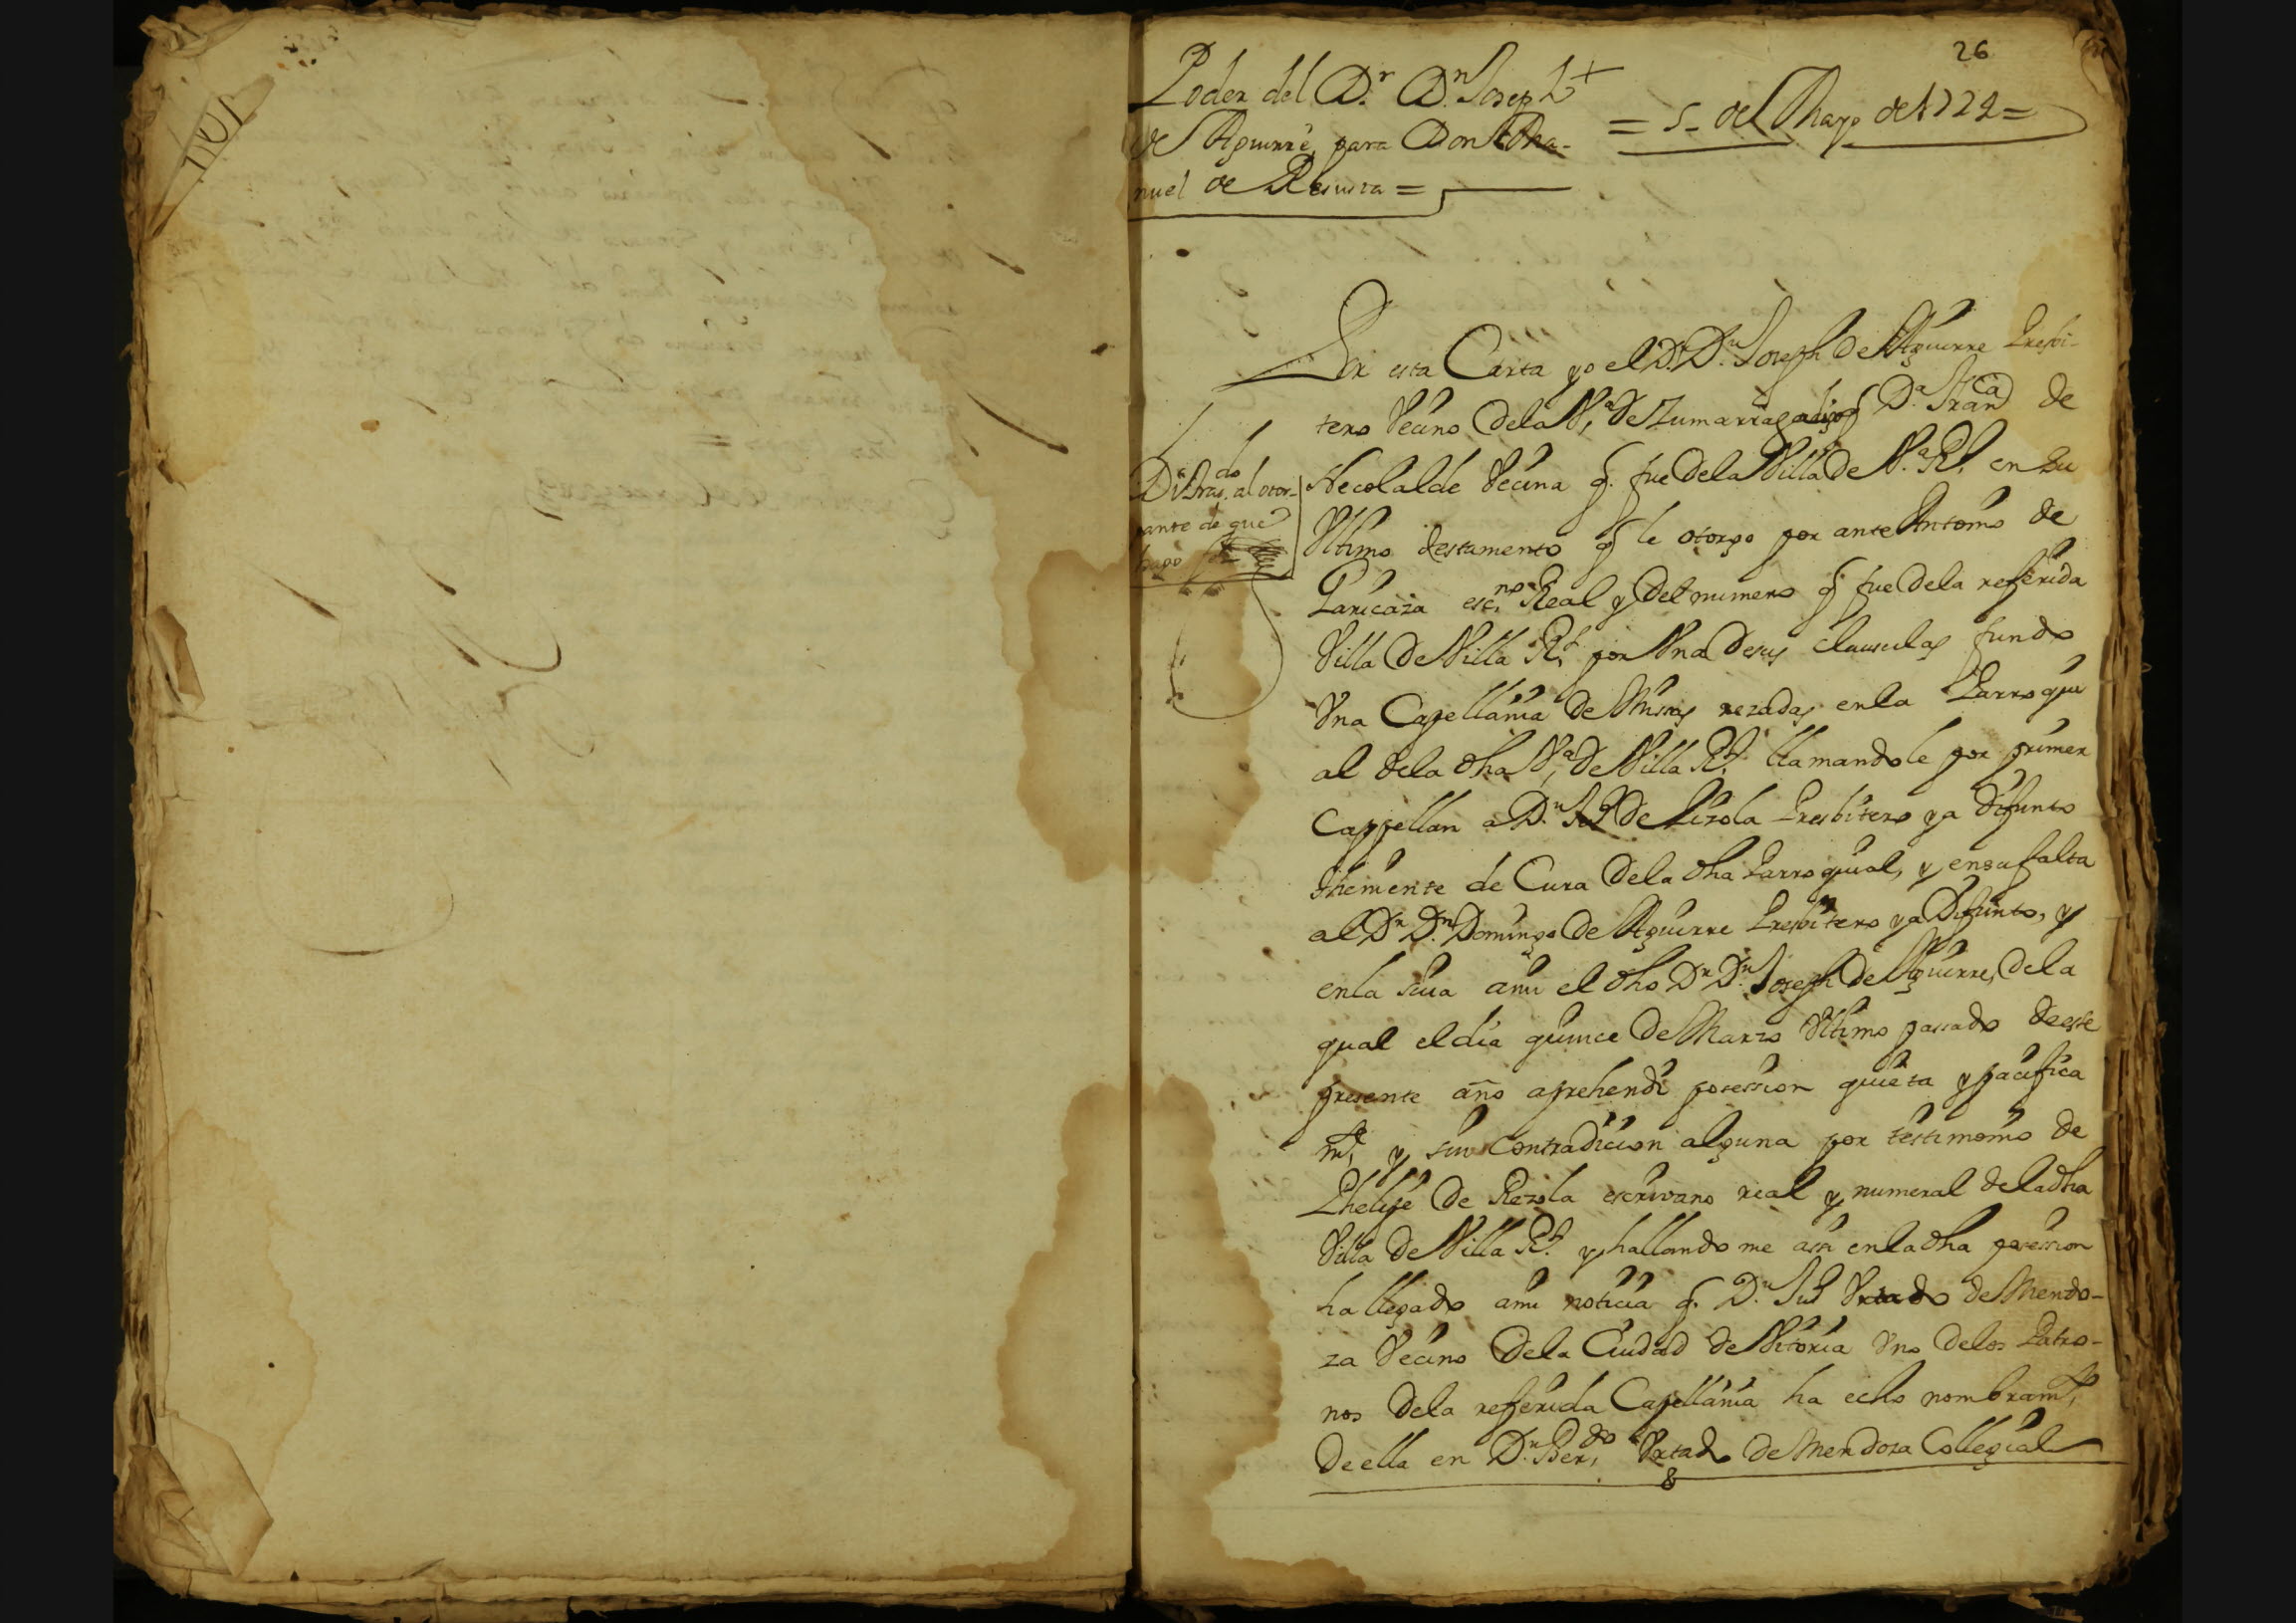 26
Poder del D.r D.n Joseph +
de Aguirre, para Don Ma-
nuel de Resusta =
= 5 de Mayo de 1724 =
Por esta Carta yo el D.r D.n Joseph de Aguirre Presbi-
tero Vecino de la V.a de Zumarraga digo q D.a Fran.ca de
Necolalde Vecina q. fue de la Villa de V.a R.l en su
Ultimo testamento q le otorgo por ante Antonio de
Laricaza esc.no Real y del numero q fue de la referida
Villa de Villa R.l por Una de sus clausulas fundo
Una Capellania de Missas rezadas en la Parroqui
al de la dha V.a de Villa R.l llamandole por primer
Cappellan a D.n Ju.o de Lizola Presbitero ya difunto
theniente de Cura de la dha Parroquial, y en su falta
al D.r D.n Domingo de Aguirre Presbitero ya Difunto, y
en la suia a mi el dho D.r D.n Joseph de Aguirre, de la
qual el dia quince de Marzo Ultimo passado de este
presente año aprehendi possession quieta y pacifica
m.te y sin contradicion alguna por testimonio de
Phelipe de Rezola escrivano real y numeral de la dha
Villa de Villa R.l y hallandome assi en la dha possession
ha llegado a mi noticia q. D.n Ju.o Urtado de Mendo-
za Vecino de la Ciudad de Vitoria Uno de los Patro-
nos de la referida Capellania ha echo nombram.to
de ella en D.n Ber.do Urtado de Mendoza Collegial
Di tras.do al otor-
gante de que
hago fee